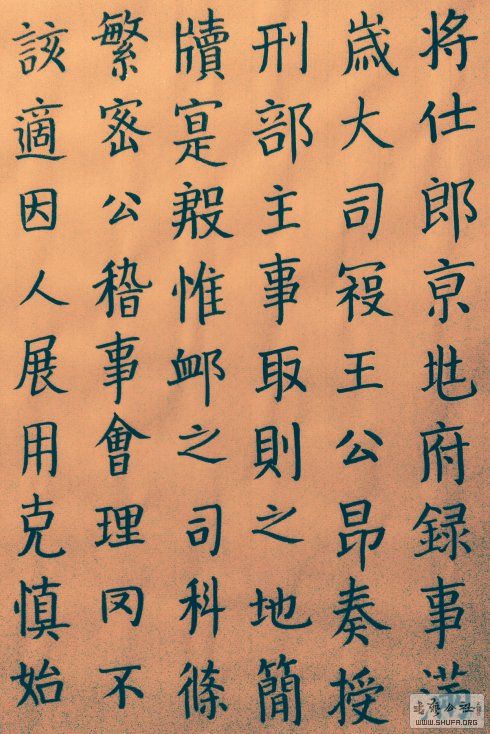 将仕郎亰兆府録事满
歳大司寇王公昂奏授
刑部主事取則之地簡
牘寔殷惟卹之司科條
繁密公稽事會理罔不
該適因人展用克慎始
WWW.SHUFA.ORG